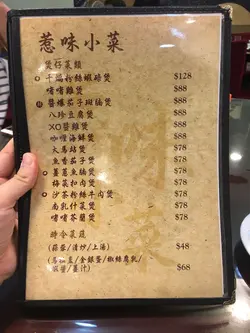 惹味小菜
煲仔菜類
千福粉絲蝦蹄煲 $128
啫啫雞煲 $88
醬爆茄子斑腩煲 $88
八珍豆腐煲 $88
XO醬雞煲 $88
咖喱海鮮煲 $88
大馬站煲 $78
魚香茄子煲 $78
薑蔥魚腩煲 $78
梅菜扣肉煲 $78
沙茶粉絲牛肉煲 $78
南乳什菜煲 $78
啫啫芥蘭煲 $78
時令菜蔬
(蒜蓉/清炒/上湯) $48
/金銀蛋/椒絲腐乳/
蝦醬/薑汁) $68